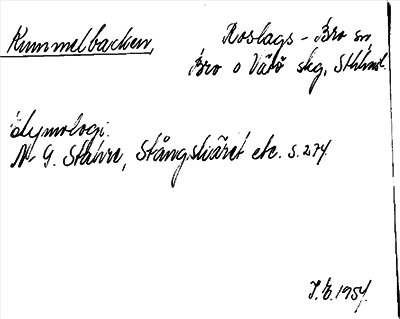 Kummelbacken,
Roslags-Bro sn
Bro o Vätö skg, Sthlmsl.
Etymologi.
N. G. Stahre, Stångskäret etc. s. 274.
1954.